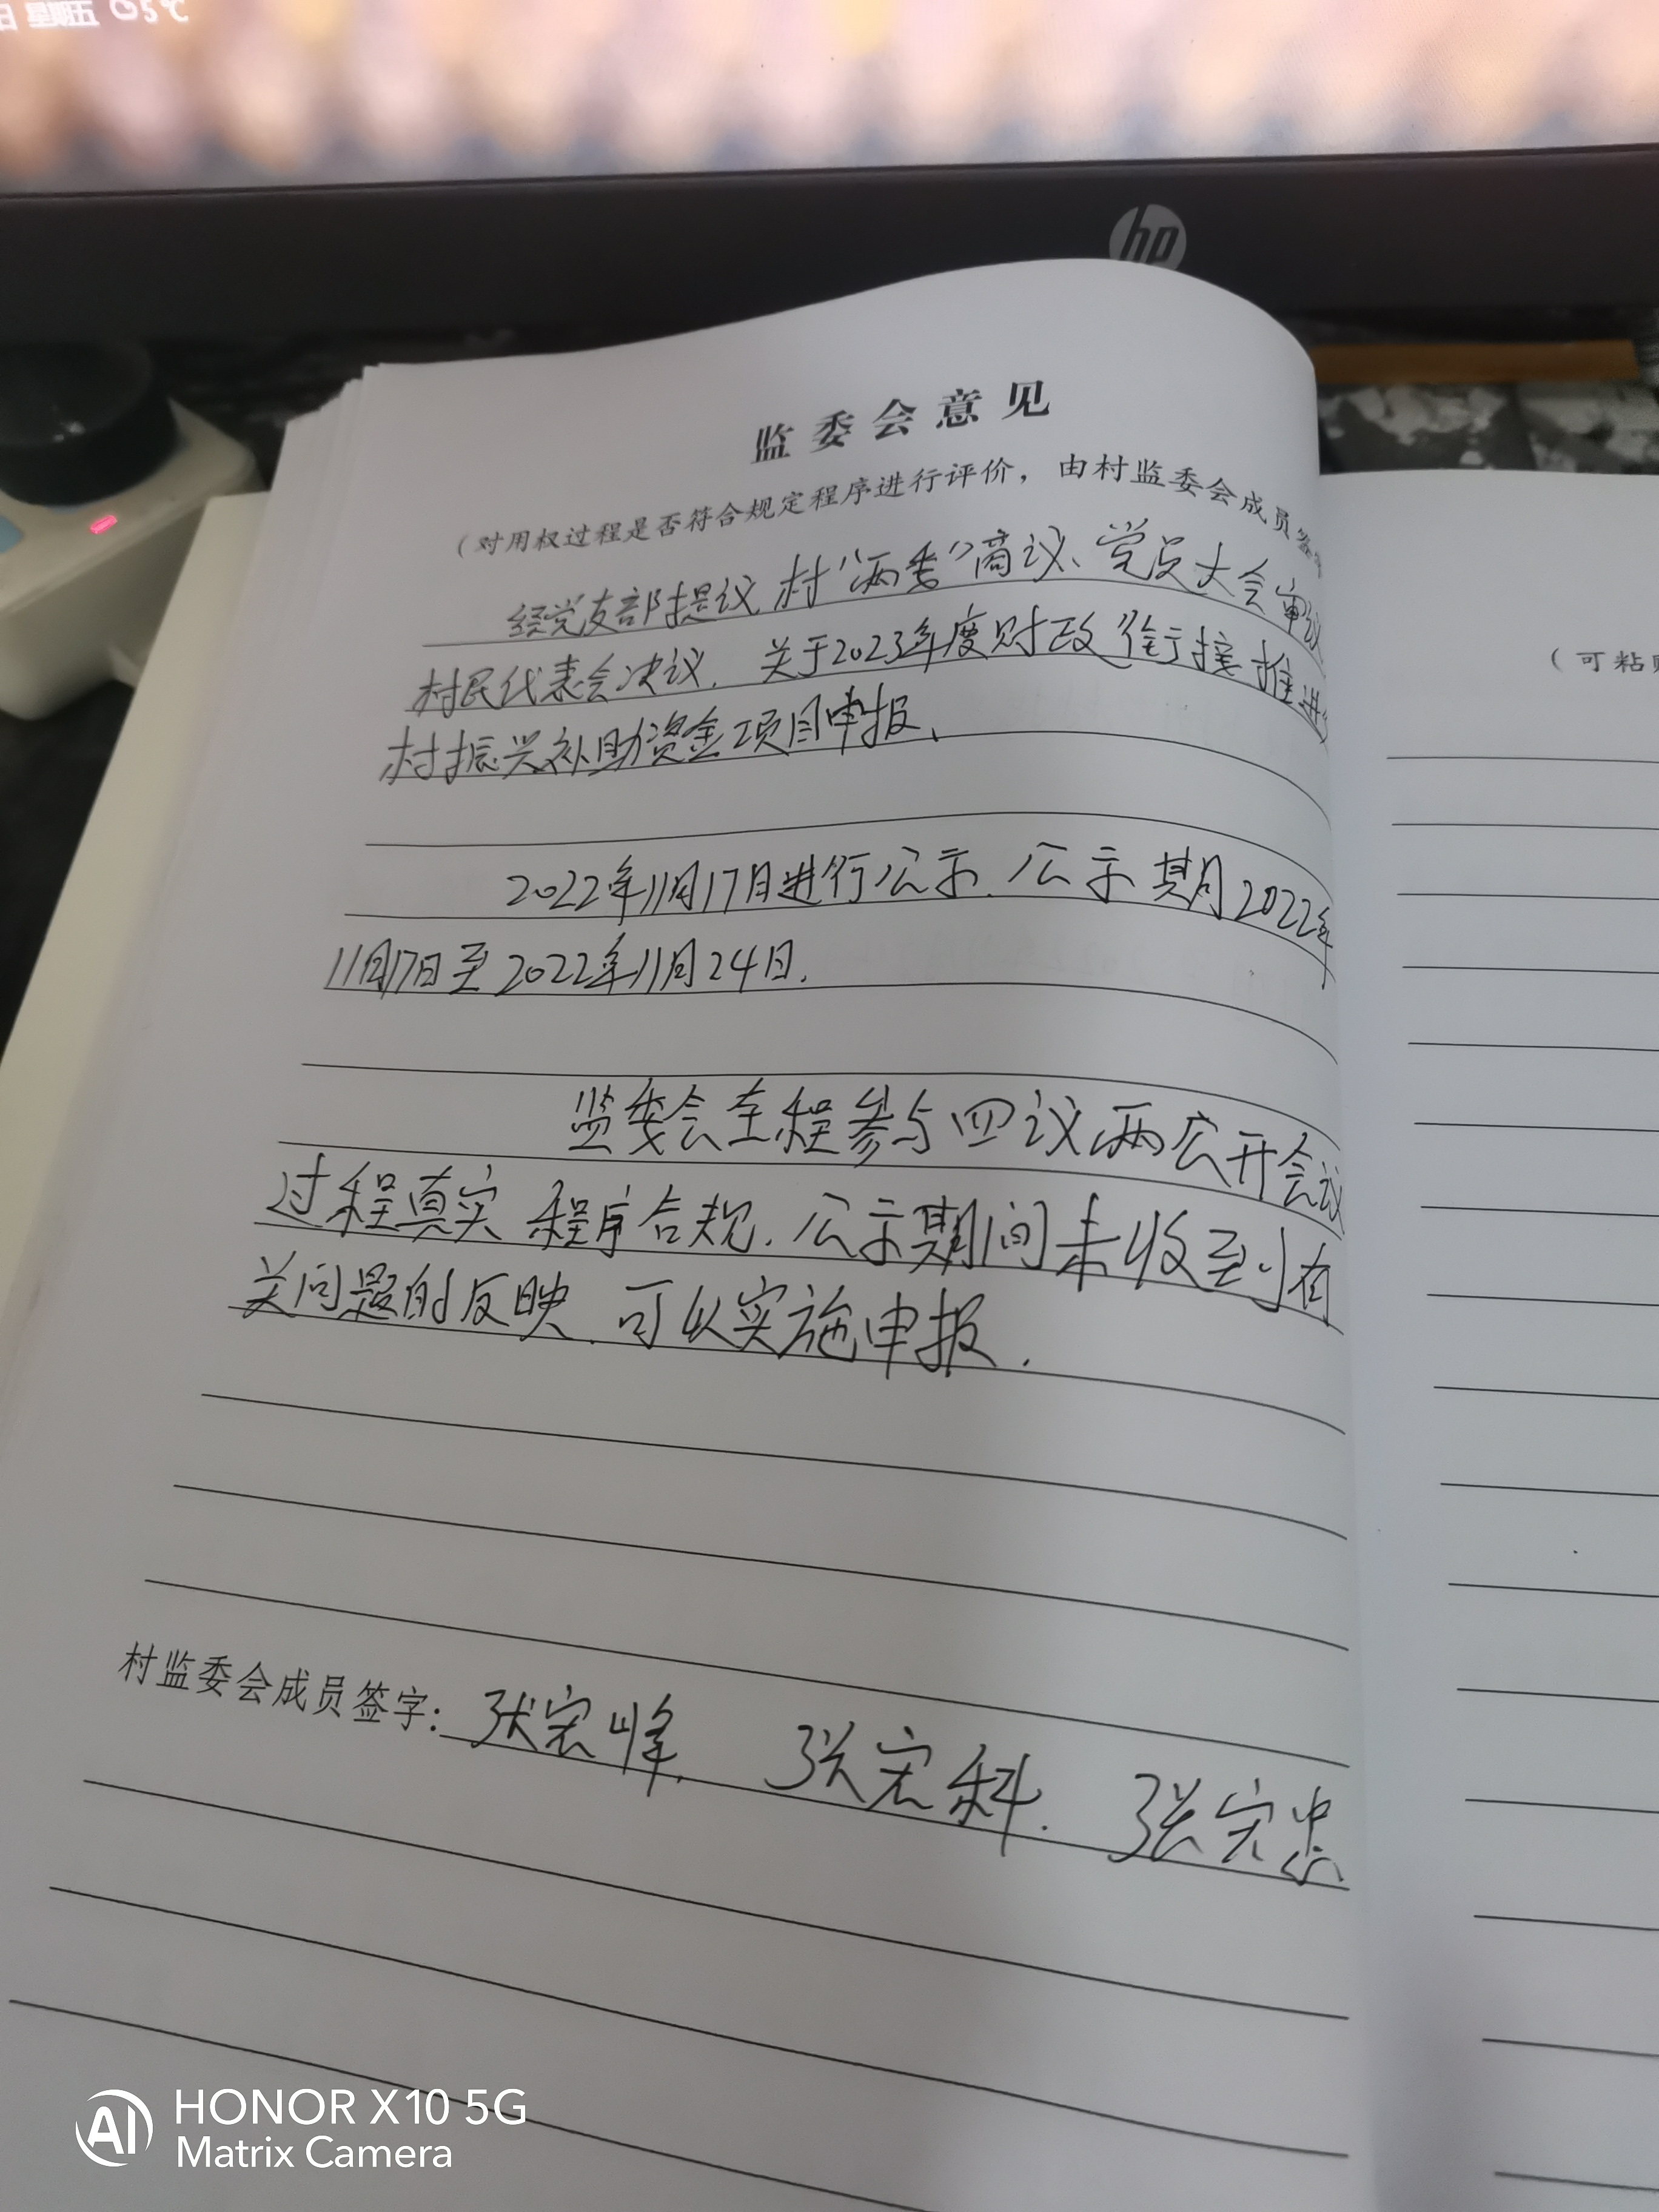 日 星期五 5℃
hp
监委会意见
（对用权过程是否符合规定程序进行评价，由村监委会成员签
经党支部提议 村“两委”商议、党员大会审议
村民代表会决议. 关于2023年度财政衔接推进
村振兴补助资金项目申报、
2022年11月17日进行公示. 公示期2022年
11月17日至2022年11月24日.
监委会全程参与四议两公开会议
过程真实 程序合规. 公示期间未收到有
关问题的反映. 可以实施申报.
村监委会成员签字: 张宏峰. 张宏科. 张宏忠
（可粘贴
AI HONOR X10 5G
Matrix Camera